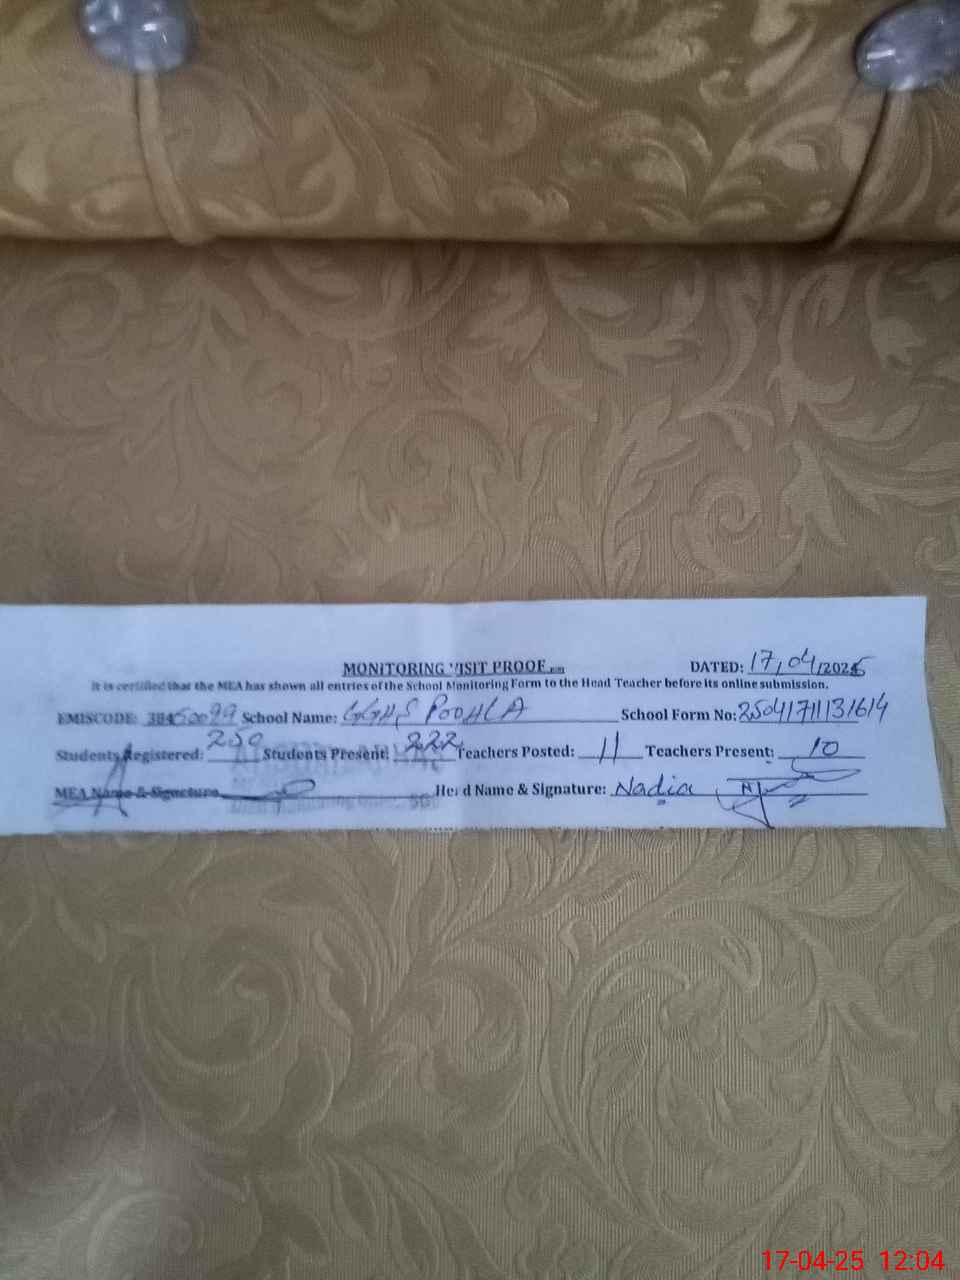 MONITORING VISIT PROOF DATED: 17,04,2025
It is certified that the MEA has shown all entries of the School Monitoring Form to the Head Teacher before its online submission.
EMISCODE: 38450099 School Name: GGHS POOHLA School Form No: 25041711131614
Students Registered: 250 Students Present: 222 Teachers Posted: 11 Teachers Present: 10
MEA Name & Signature Head Name & Signature: Nadia
17-04-25 12:04